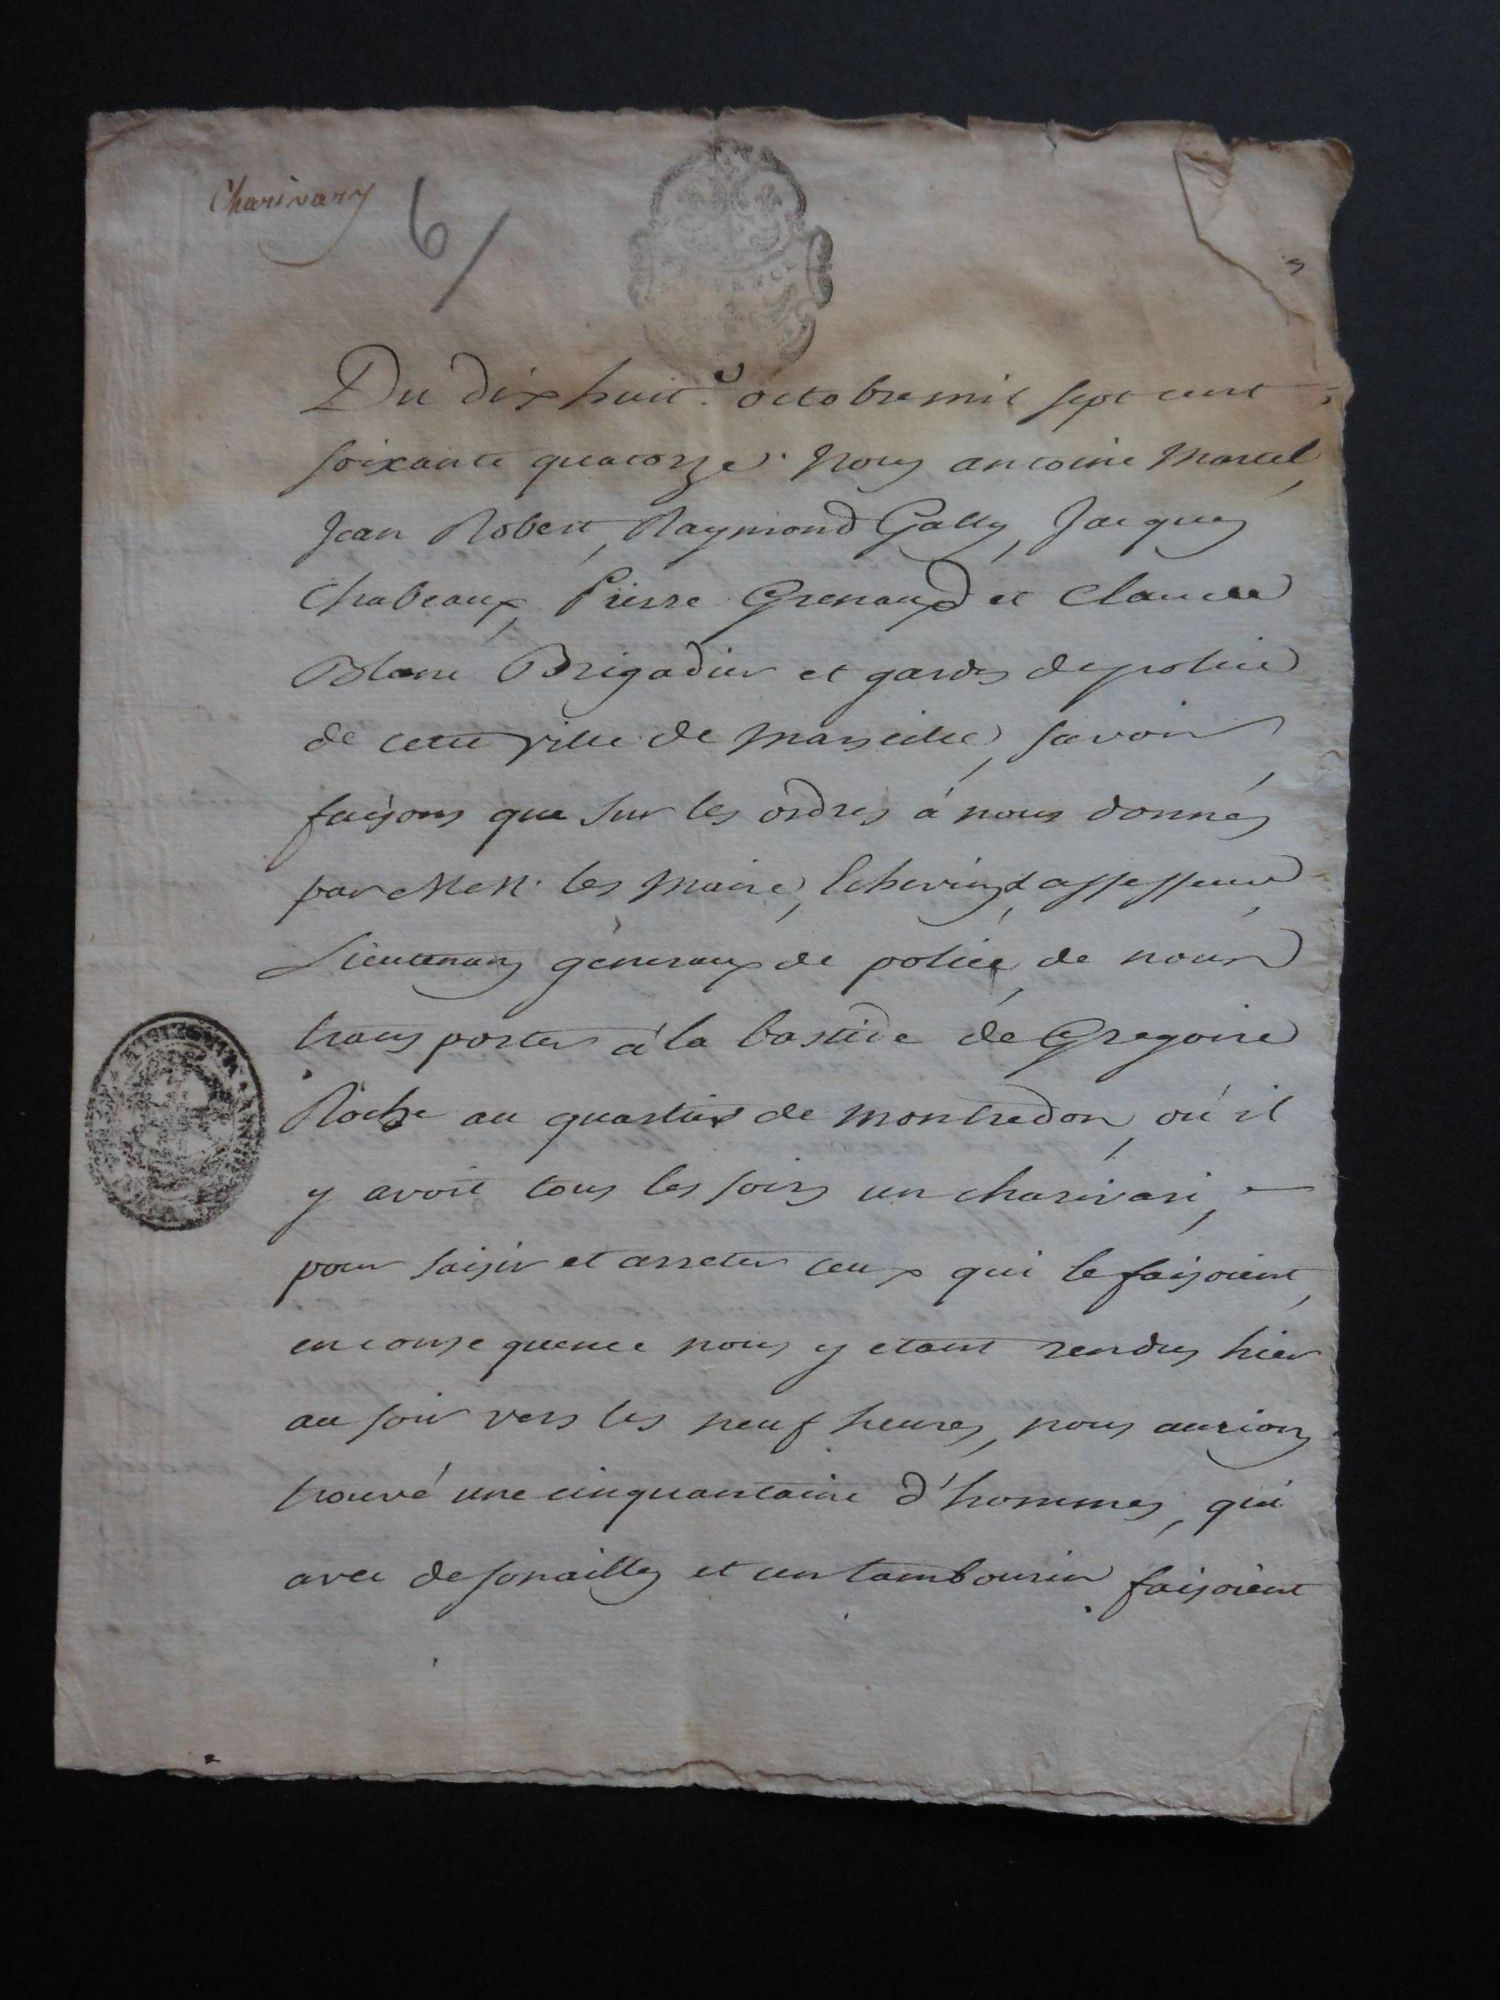 Charivary
6/
PROVENCE
Du dix huit.e octobre mil sept cent
soixante quatorze. Nous antoine Marcel,
Jean Robert, Raymond Gally, Jacques
Chabeaux, Pierre Grenaud et Claude
Blanc Brigadier et gardes de police
de cette ville de Marseille, savoir
faisons que sur les ordres à nous donnés
par MM. les Maire, Echevins, & assesseur
Lieutenans généraux de police, de nous
transporter à la bastide de Gregoire
Roche au quartier de montredon, où il
y avoit tous les soirs un charivari,
pour saisir et arreter ceux qui le faisoient,
en consequence nous y etant rendus hier
au soir vers les neuf heures, nous aurions
trouvé une cinquantaine d'hommes, qui
avec de sonailles et un tambourin faisoient